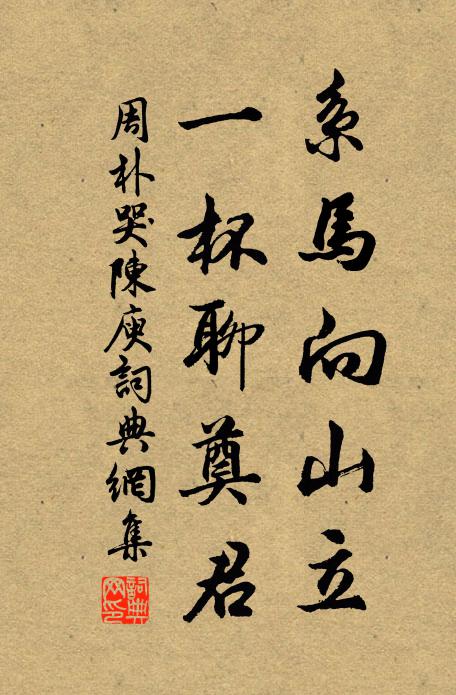 系馬向山立
一杯聊奠君
周朴哭陳庾詞典網集
詞典網印